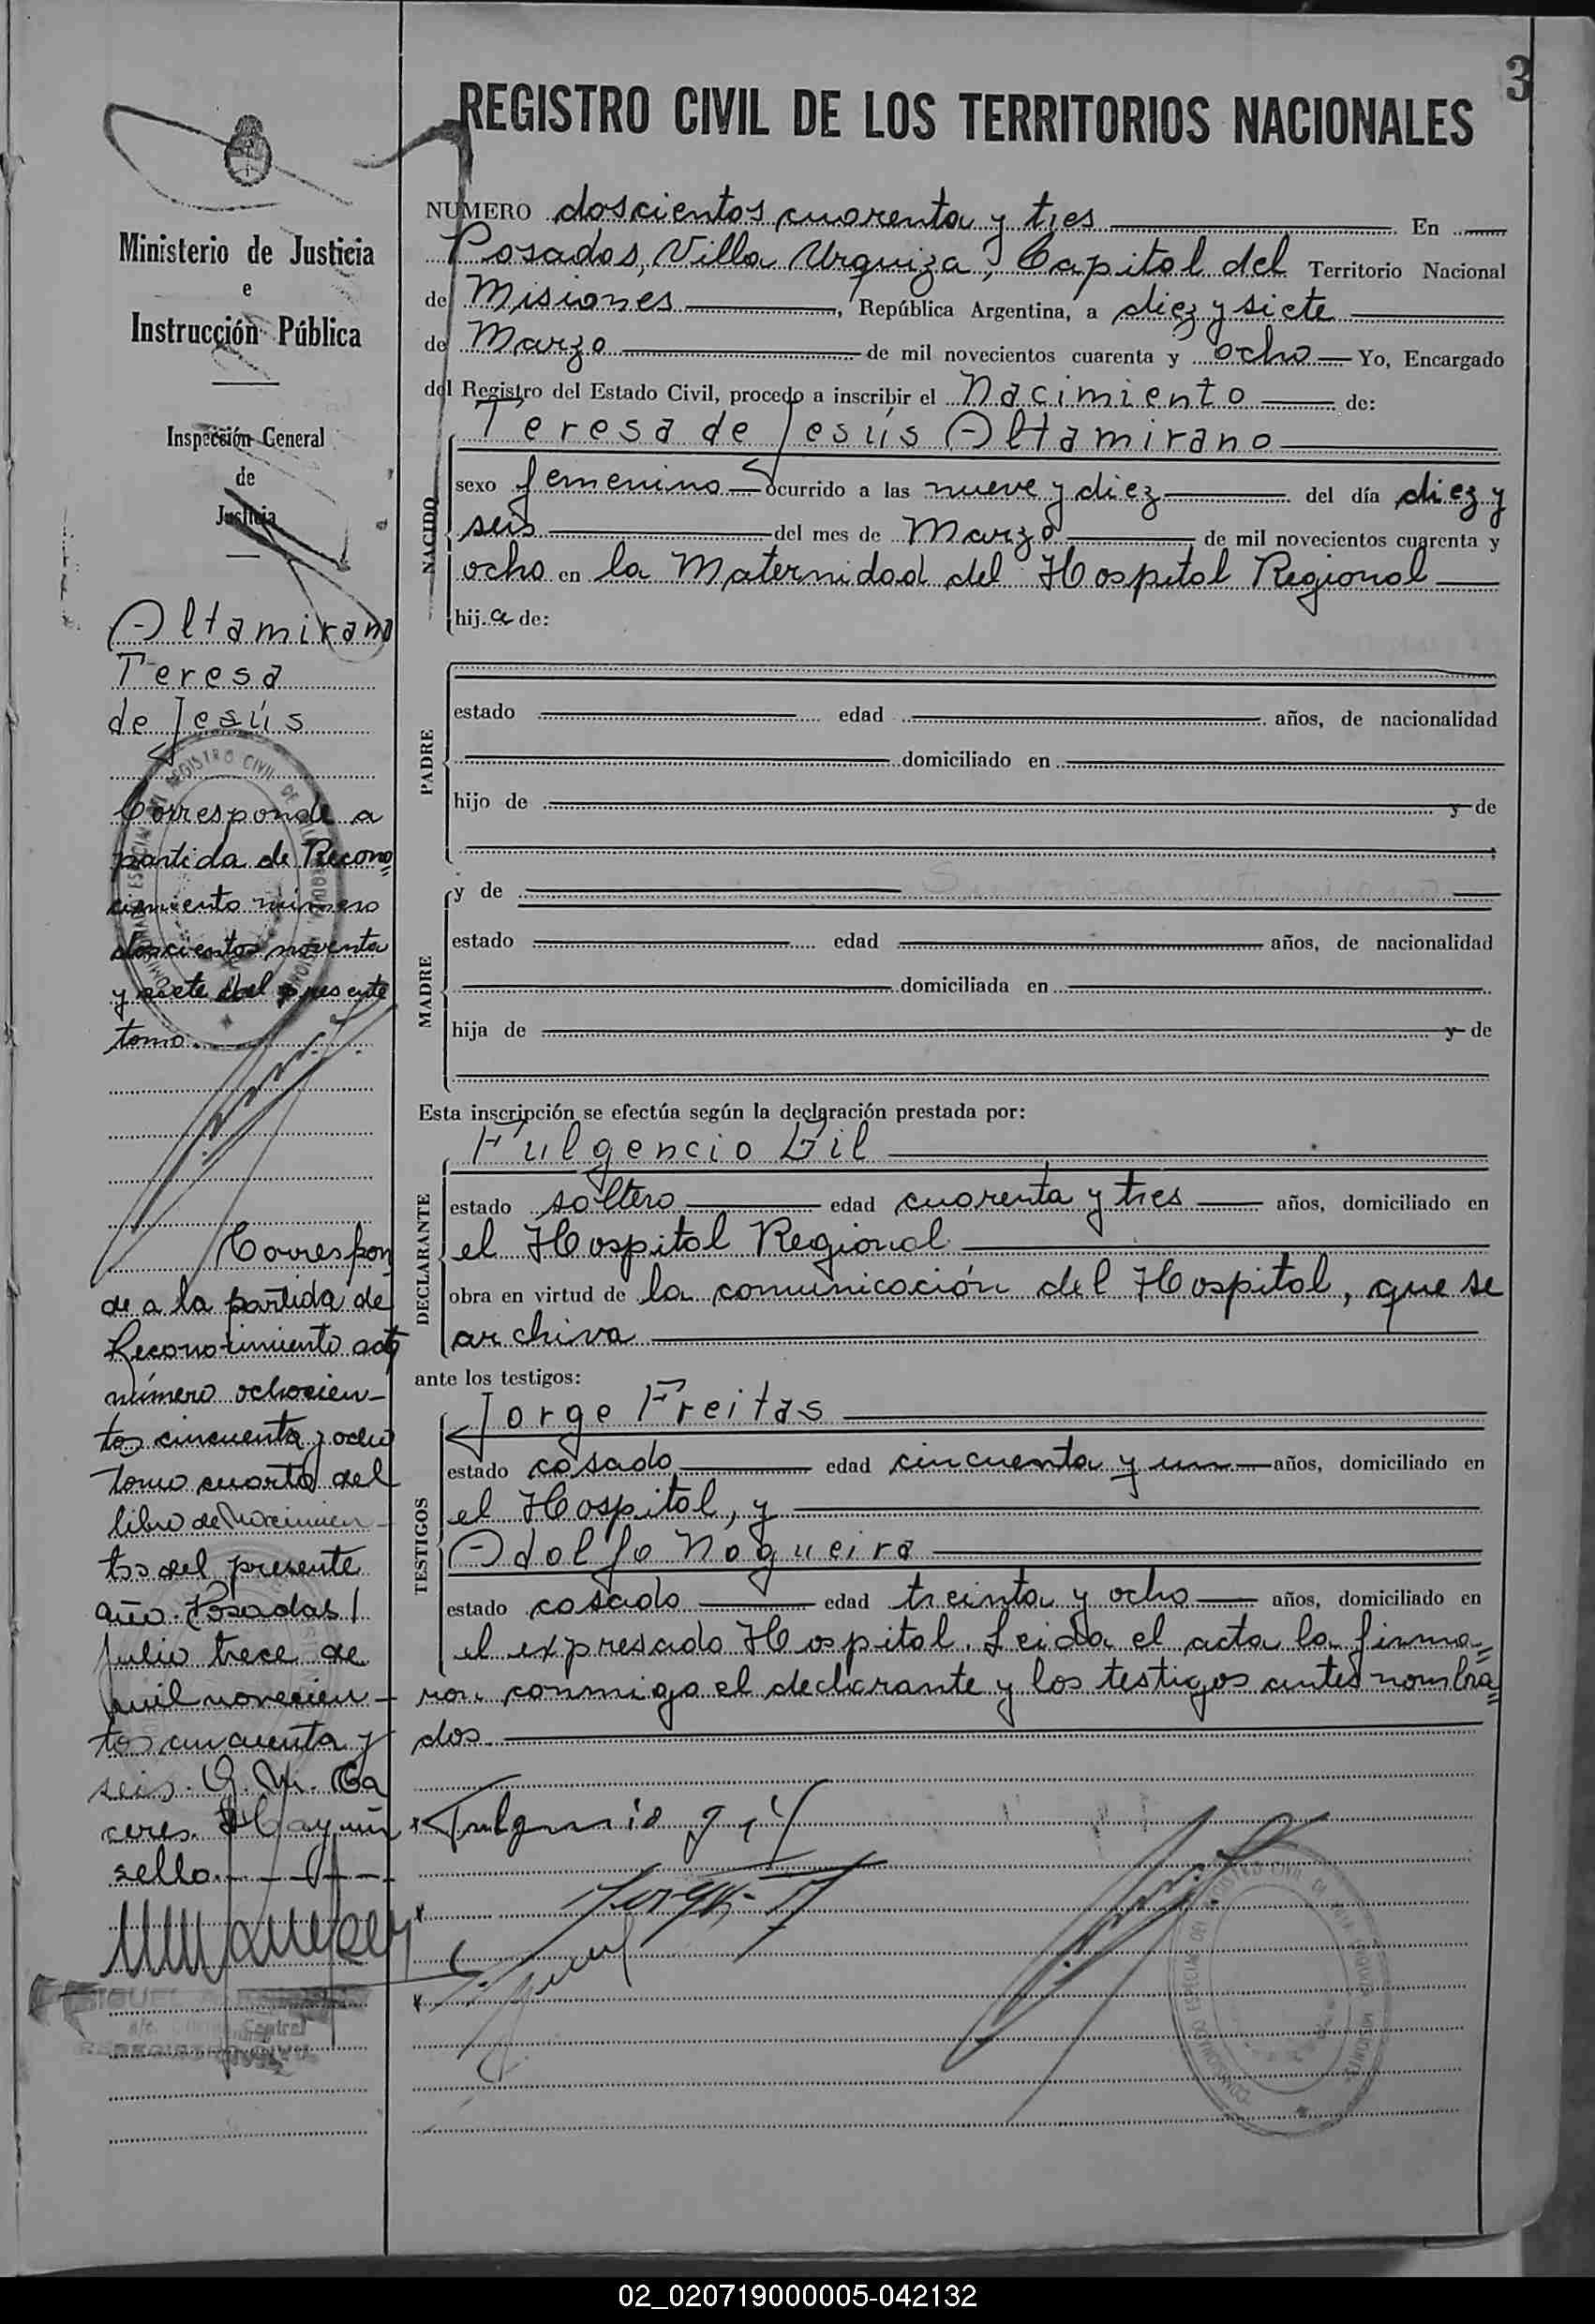 3
REGISTRO CIVIL DE LOS TERRITORIOS NACIONALES
Ministerio de Justicia
e
Instrucción Pública
Inspección General
de
Justicia
Altamirano
Teresa
de Jesús
Corresponde a
partida de Recono=
cimiento número
doscientos noventa
y siete del presente
tomo.
Correspon
de a la partida de
Reconocimiento acta
número ochocien-
tos cincuenta y ocho
tomo cuarto del
libro de Nacimien-
tos del presente
año. Posadas,
Julio trece de
mil novecien-
tos cincuenta y
seis. G. M. Ca
ceres. Hay un
sello.
NUMERO doscientos cuarenta y tres En
Posadas, Villa Urquiza, Capital del Territorio Nacional
de Misiones, República Argentina, a diez y siete
de Marzo de mil novecientos cuarenta y ocho Yo, Encargado
del Registro del Estado Civil, procedo a inscribir el Nacimiento de:
Teresa de Jesús Altamirano
NACIDO
sexo femenino ocurrido a las nueve y diez del día diez y
seis del mes de Marzo de mil novecientos cuarenta y
ocho en la Maternidad del Hospital Regional
hij.a de:
PADRE
estado edad años, de nacionalidad
domiciliado en
hijo de y de
MADRE
y de
estado edad años, de nacionalidad
domiciliada en
hija de y de
Esta inscripción se efectúa según la declaración prestada por:
Fulgencio Gil
DECLARANTE
estado soltero edad cuarenta y tres años, domiciliado en
el Hospital Regional
obra en virtud de la comunicación del Hospital, que se
archiva
ante los testigos:
Jorge Freitas
TESTIGOS
estado casado edad cincuenta y un años, domiciliado en
el Hospital, y
Adolfo Nogueira
estado casado edad treinta y ocho años, domiciliado en
el expresado Hospital. Leida el acta la firma=
ron conmigo el declarante y los testigos antes nombra=
dos
Fulgencio Gil
02_020719000005-042132